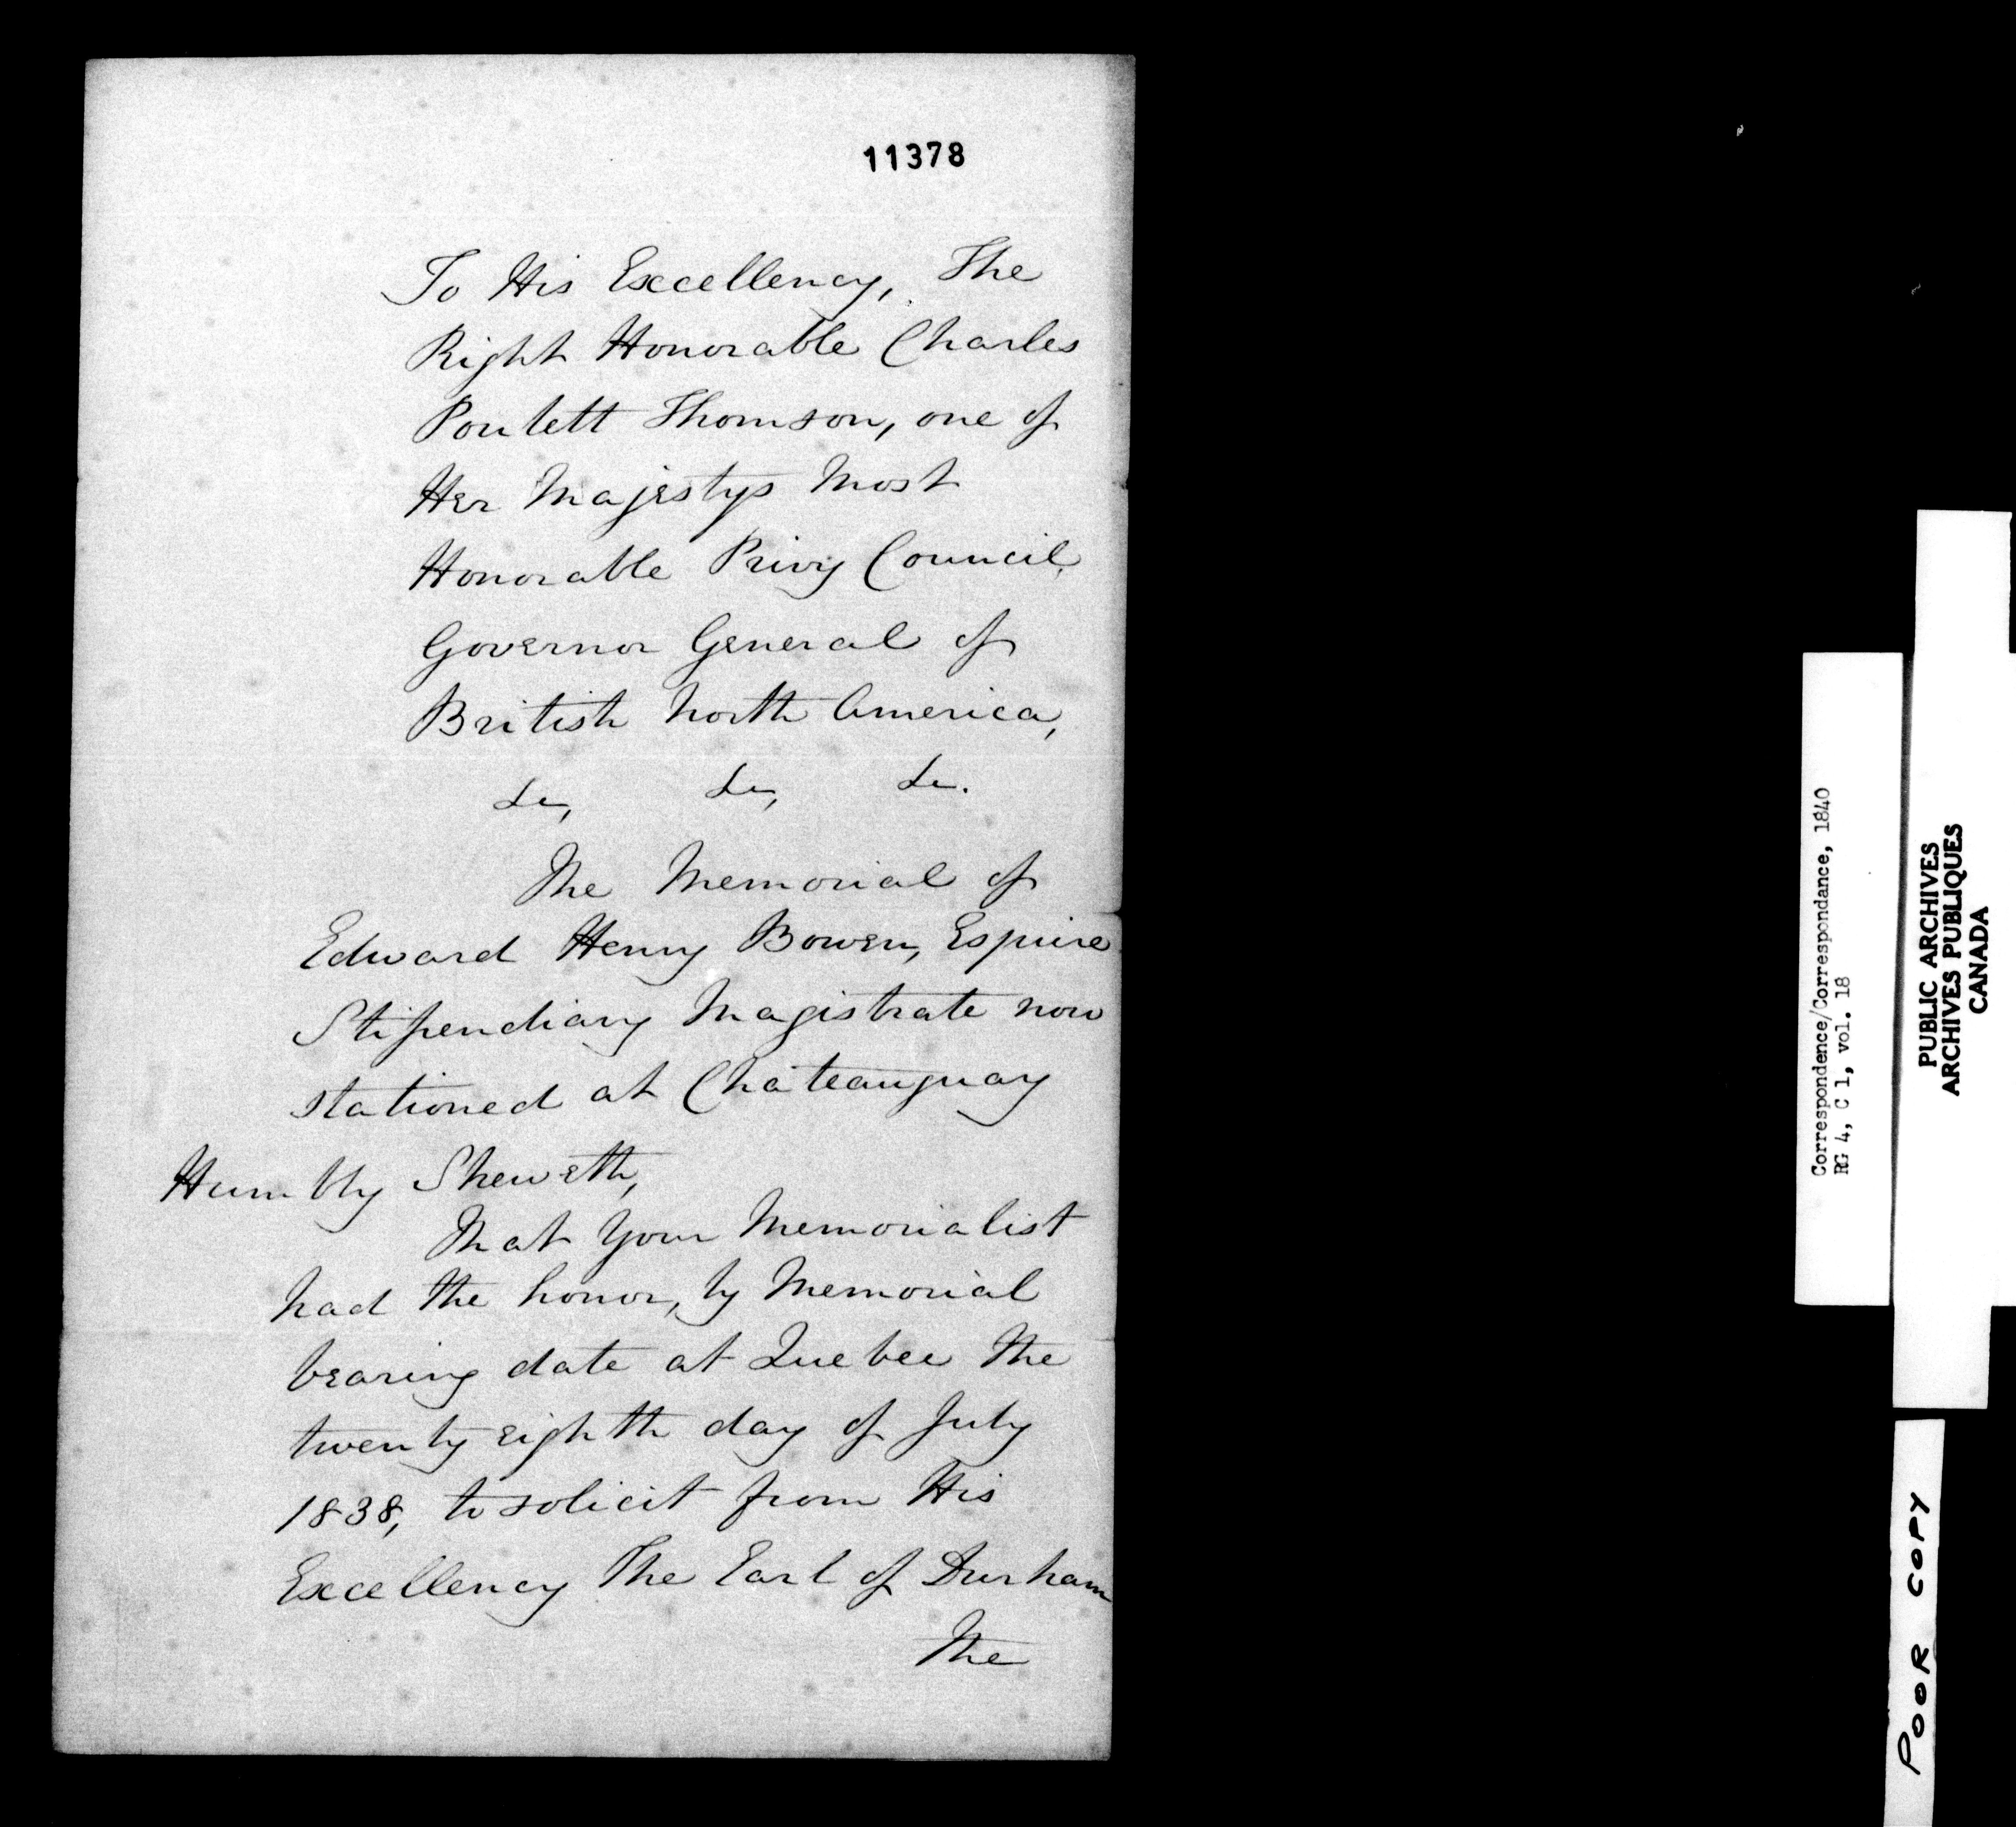 11378
To His Excellency, The
Right Honorable Charles
Poulett Thomson, one of
Her Majestys Most
Honorable Privy Council,
Governor General of
British North America,
&c, &c, &c.
The Memorial of
Edward Henry Bowen, Esquire
Stipendiary Magistrate now
stationed at Chateauguay
Humbly Sheweth,
That Your Memorialist
had the honor, by Memorial
bearing date at Quebec the
twenty eighth day of July
1838, to solicit from His
Excellency The Earl of Durham
the
Correspondence/Correspondance, 1840
RG 4, C 1, vol. 18
PUBLIC ARCHIVES
ARCHIVES PUBLIQUES
CANADA
POOR COPY